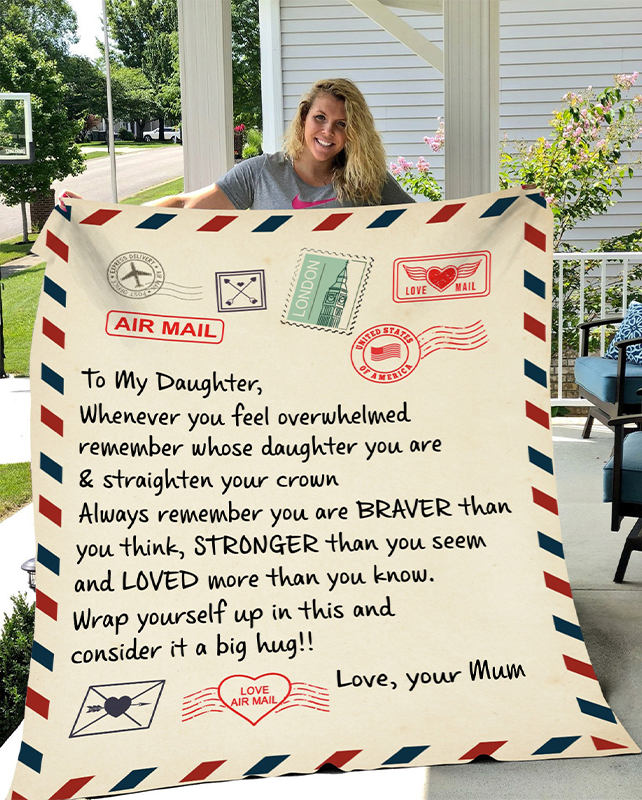 EXPRESS DELIVERY
AIR MAIL
POST OFFICE
LONDON
LOVE MAIL
AIR MAIL
UNITED STATES
OF AMERICA
To My Daughter,
Whenever you feel overwhelmed
remember whose daughter you are
& straighten your crown
Always remember you are BRAVER than
you think, STRONGER than you seem
and LOVED more than you know.
Wrap yourself up in this and
consider it a big hug!!
Love, your Mum
LOVE
AIR MAIL